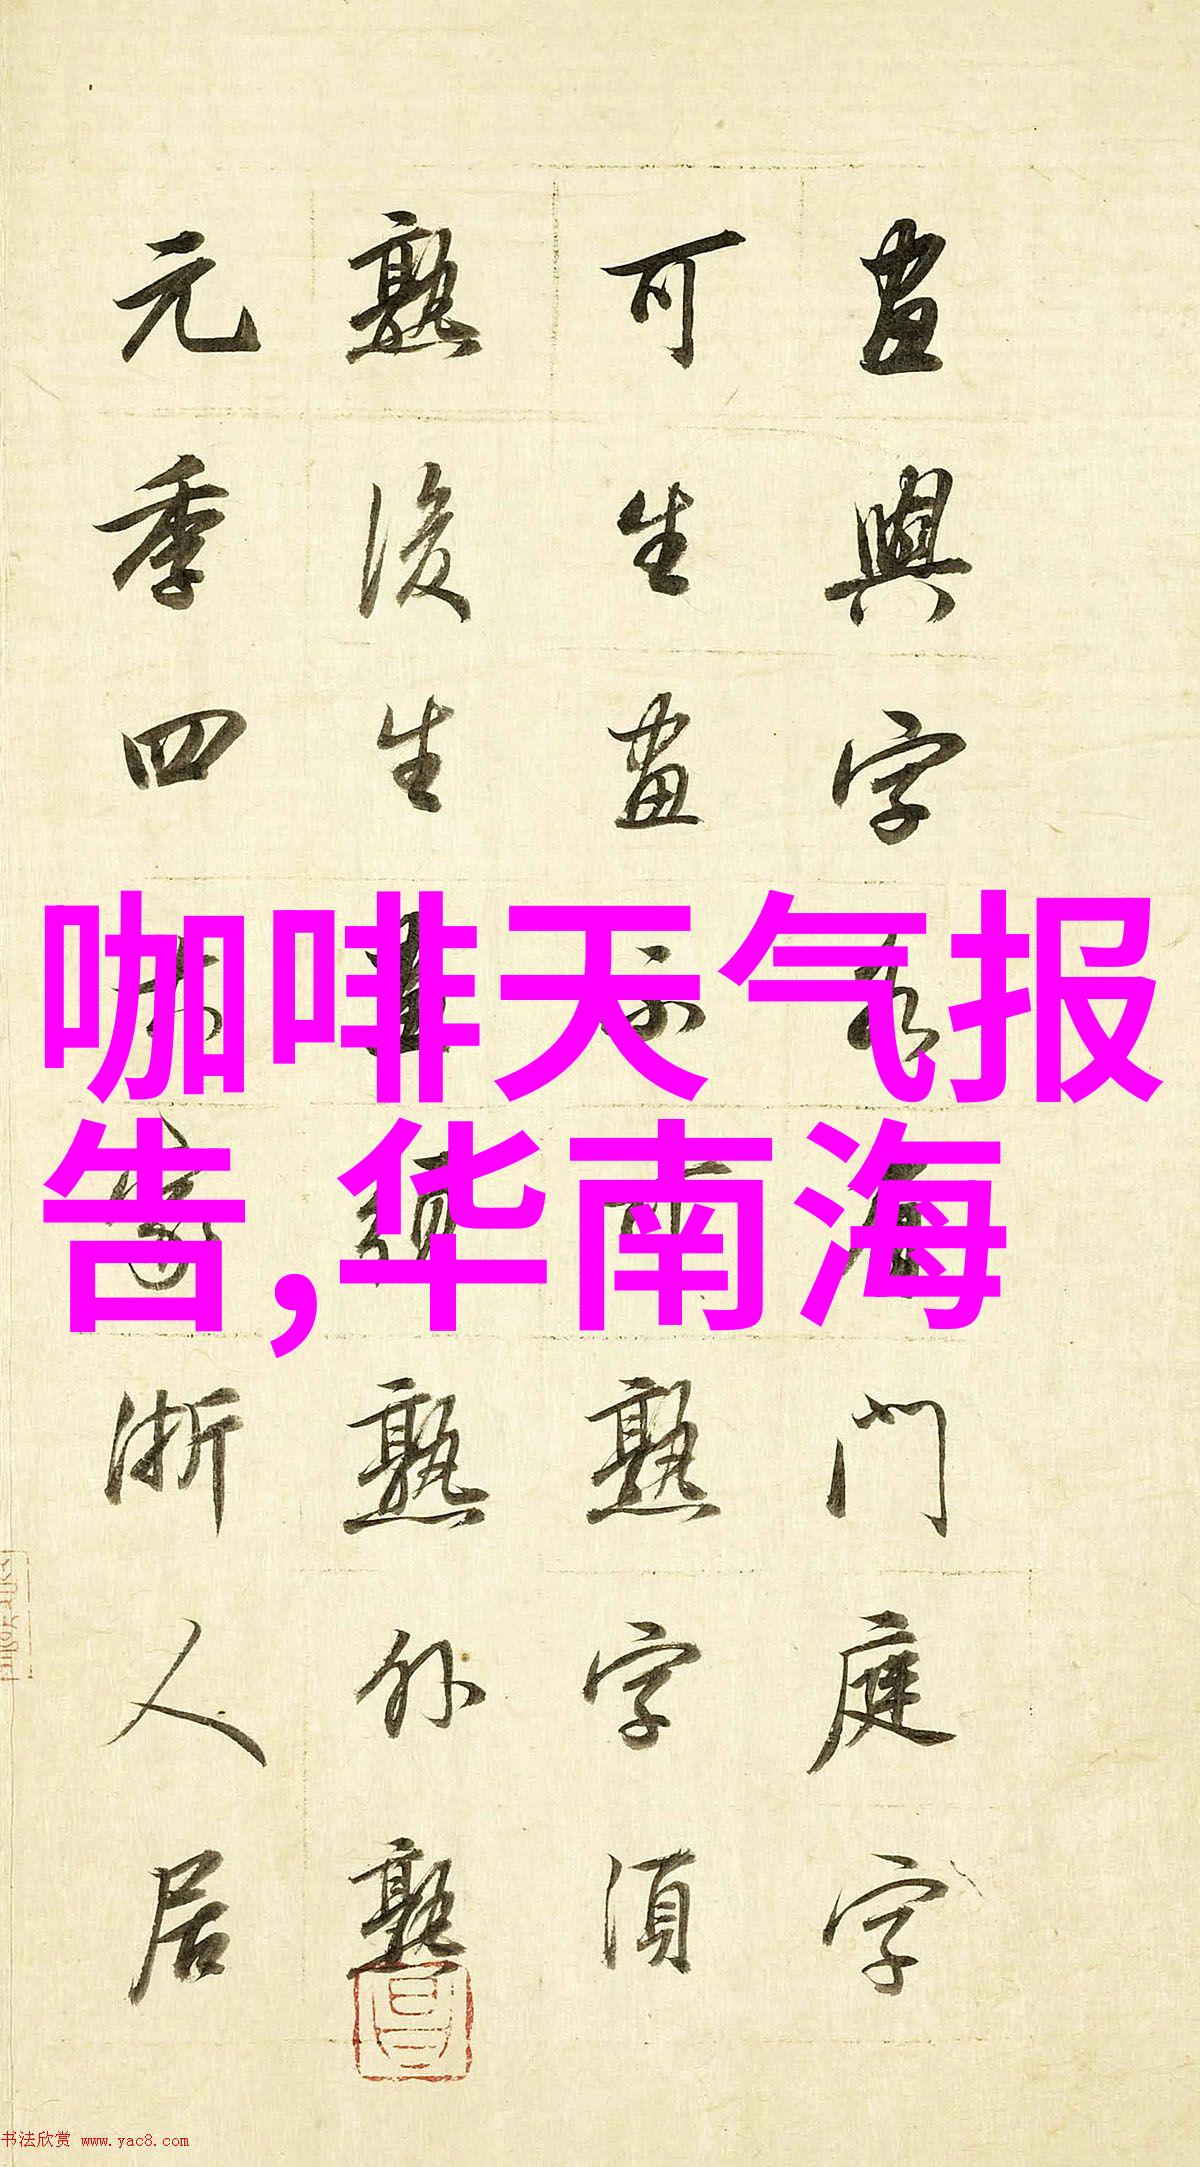 畫與字各有門庭字
可生畫不可熟字須
熟後生畫須熟外熟
元季四大家浙人居
咖啡天气报
告,华南海
书法欣赏 www.yac8.com